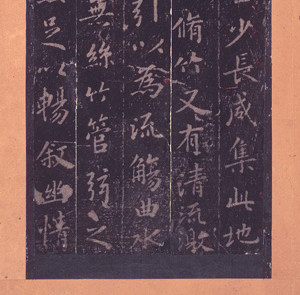 少長咸集此地
脩竹又有清流激
引以為流觴曲水
無絲竹管弦之
足以暢敘幽情